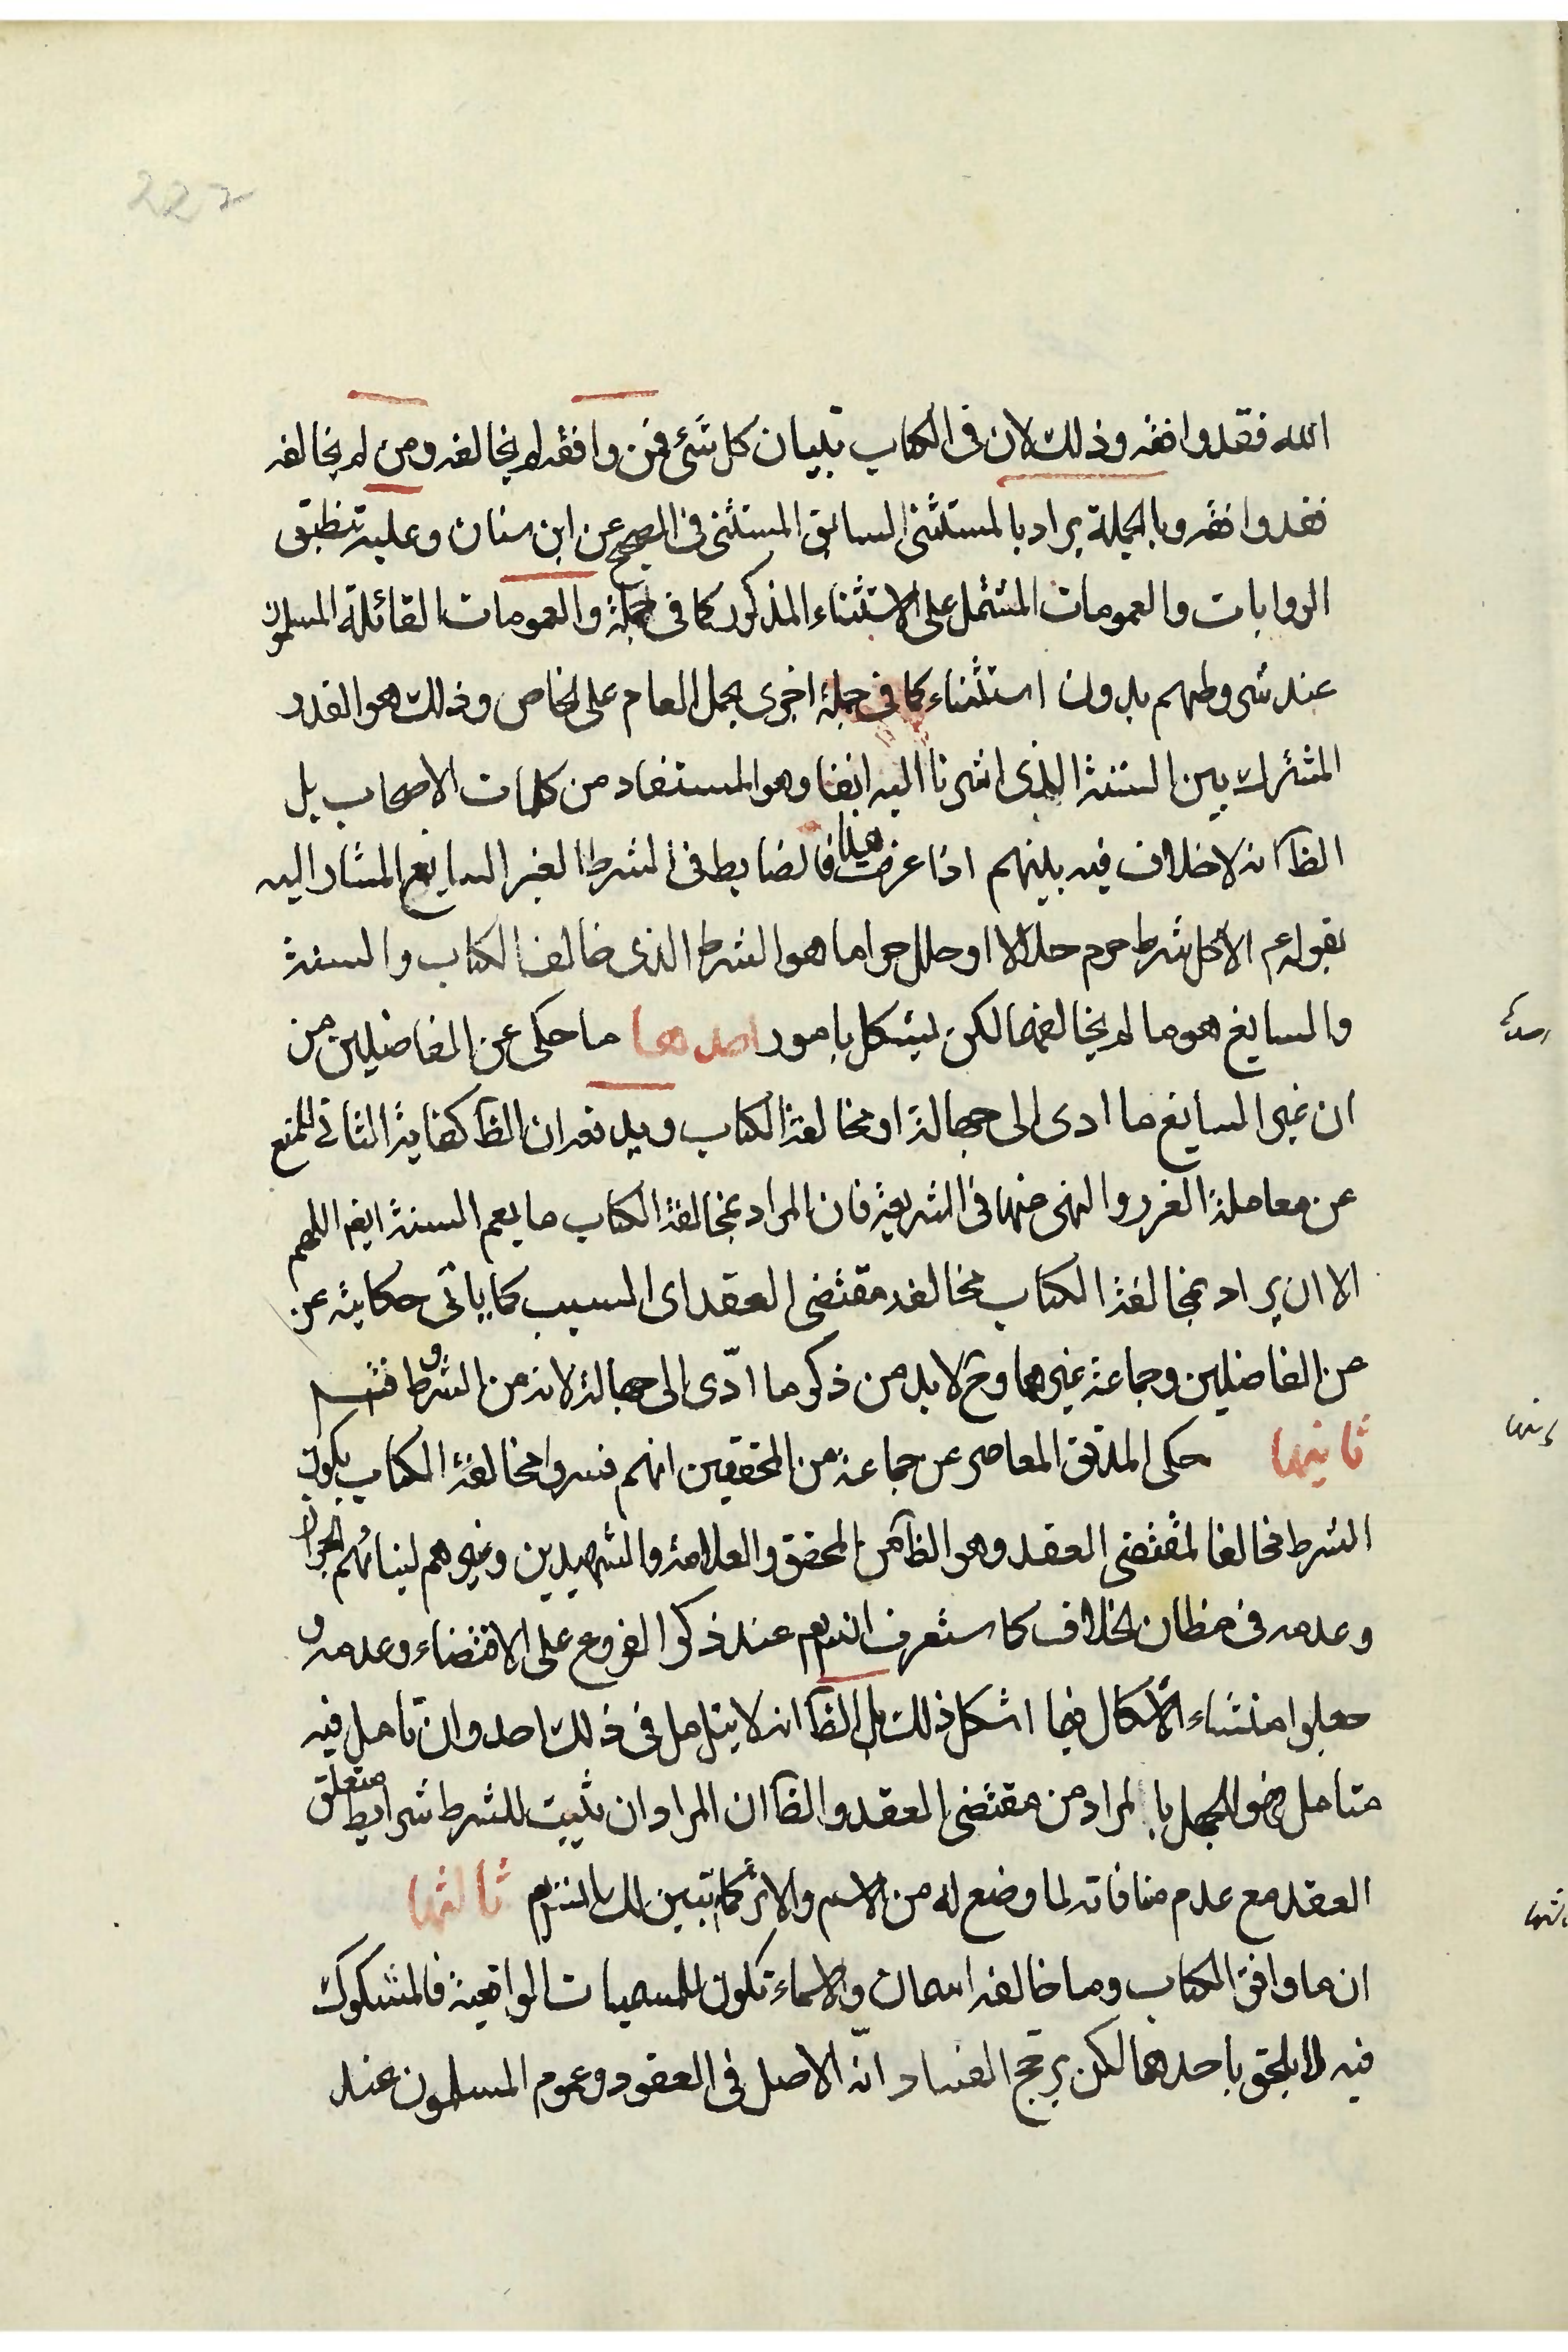 222
الله فقد وافقه وذلك لان فى الكتاب تبيان كل شئ فمن وافقه لم يخالفه ومن لم يخالفه
فقد وافقه وبالجملة يراد بالمستثنى السابق المستثنى فى الصحيح عن ابن سنان وعليه تنطبق
الروايات والعمومات المشتمل على الاستثناء المذكور كما فى جملة والعمومات القائلة المسلمون
عند شروطهم بدون استثناء كما فى جملة اخرى بحمل العام على الخاص وذلك هو القدر
المشترك بين الستة الذى اشرنا اليه انفا وهو المستفاد من كلمات الاصحاب بل
الظا انه لاخلاف فيه بينهم اذا عرفت هذا فالضابط فى الشرط الغير السايغ المشار اليه
بقوله عم الا كل شرط حرم حلالا او حلل حراما هو الشرط الذى خالف الكتاب والسنة
والسايغ هو ما لم يخالفهما لكن يشكل بامور احدها ما حكى عن الفاضلين من
ان غير السايغ ما ادى الى جهالة او مخالفة الكتاب ويدفعه ان الظا كفاية الثانى للمنع
عن معاملة الغرر والنهى عنها فى الشريعة فان المراد بمخالفة الكتاب ما يعم السنة ايضا اللهم
الا ان يراد بمخالفة الكتاب مخالفه مقتضى العقد اى السبب كما ياتى حكايته عن
من الفاضلين وجماعة غيرهما وح لابد من ذكر ما ادّى الى جهالة لانه من الشروط فتم
ثانيها حكى المدقق المعاصر عن جماعة من المحققين انهم فسروا مخالفة الكتاب بكون
الشرط مخالفا لمقتضى العقد وهو الظا من المحقق والعلامة والشهيدين وغيرهم لبنائهم الجواز
وعدمه فى مظان الخلاف كما ستعرف انشم عند ذكر الفروع على الاقتضاء وعدمه و
جعلوا منشاء الاشكال فيما اشكل ذلك بل الظا انه لا يتامل فى ذلك احد وان تامل فيه
متامل فهو للجهل بالمراد من مقتضى العقد والظا ان المراد ان يثبت للشرط شرايط متعلق
العقد مع عدم منافاته لما وضع له من الاسم والاثر كما تبين لك انشم ثالثها
ان ما وافق الكتاب وما خالفه اسمان والاسماء تكون للمسميات الواقعية فالمشكوك
فيه لا يلحق باحدهما لكن يرجح الفساد انّه الاصل فى العقود وعموم المسلمون عند